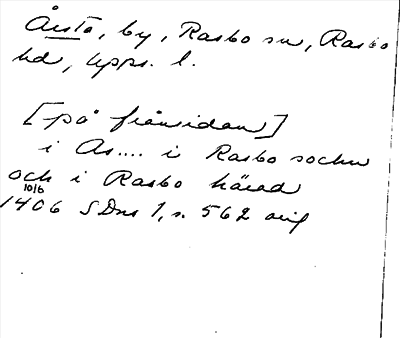 Årsta, by, Rasbo sn, Rasbo
hd, Upps. l.
[på frånsidan]
i As.... i Rasbo sochn
och i Rasbo härad
10/6
1406 SDns 1, s. 562 orig